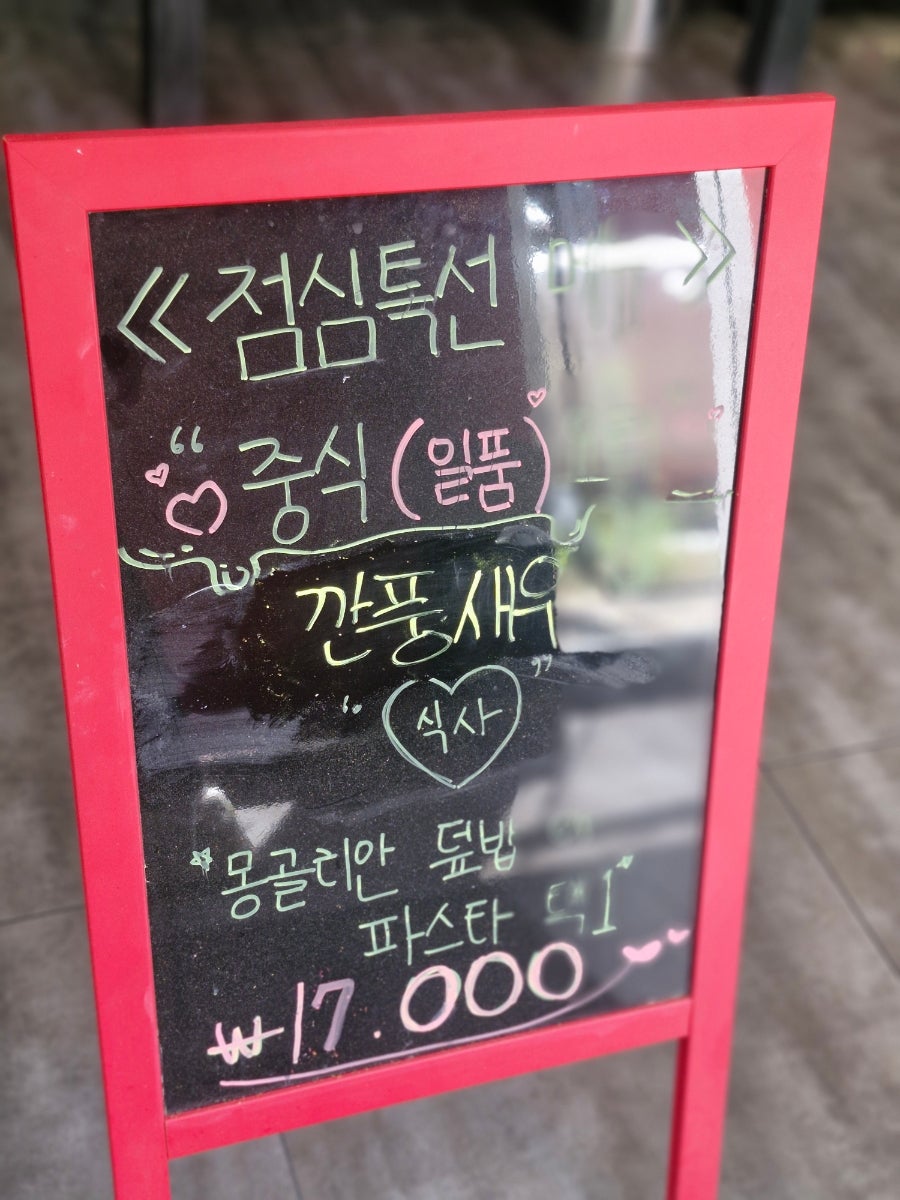 《점심특선 메뉴》
“중식 (일품)
깐풍새우
“식사”
"몽골리안 덮밥 or
파스타 택1"
₩17.000